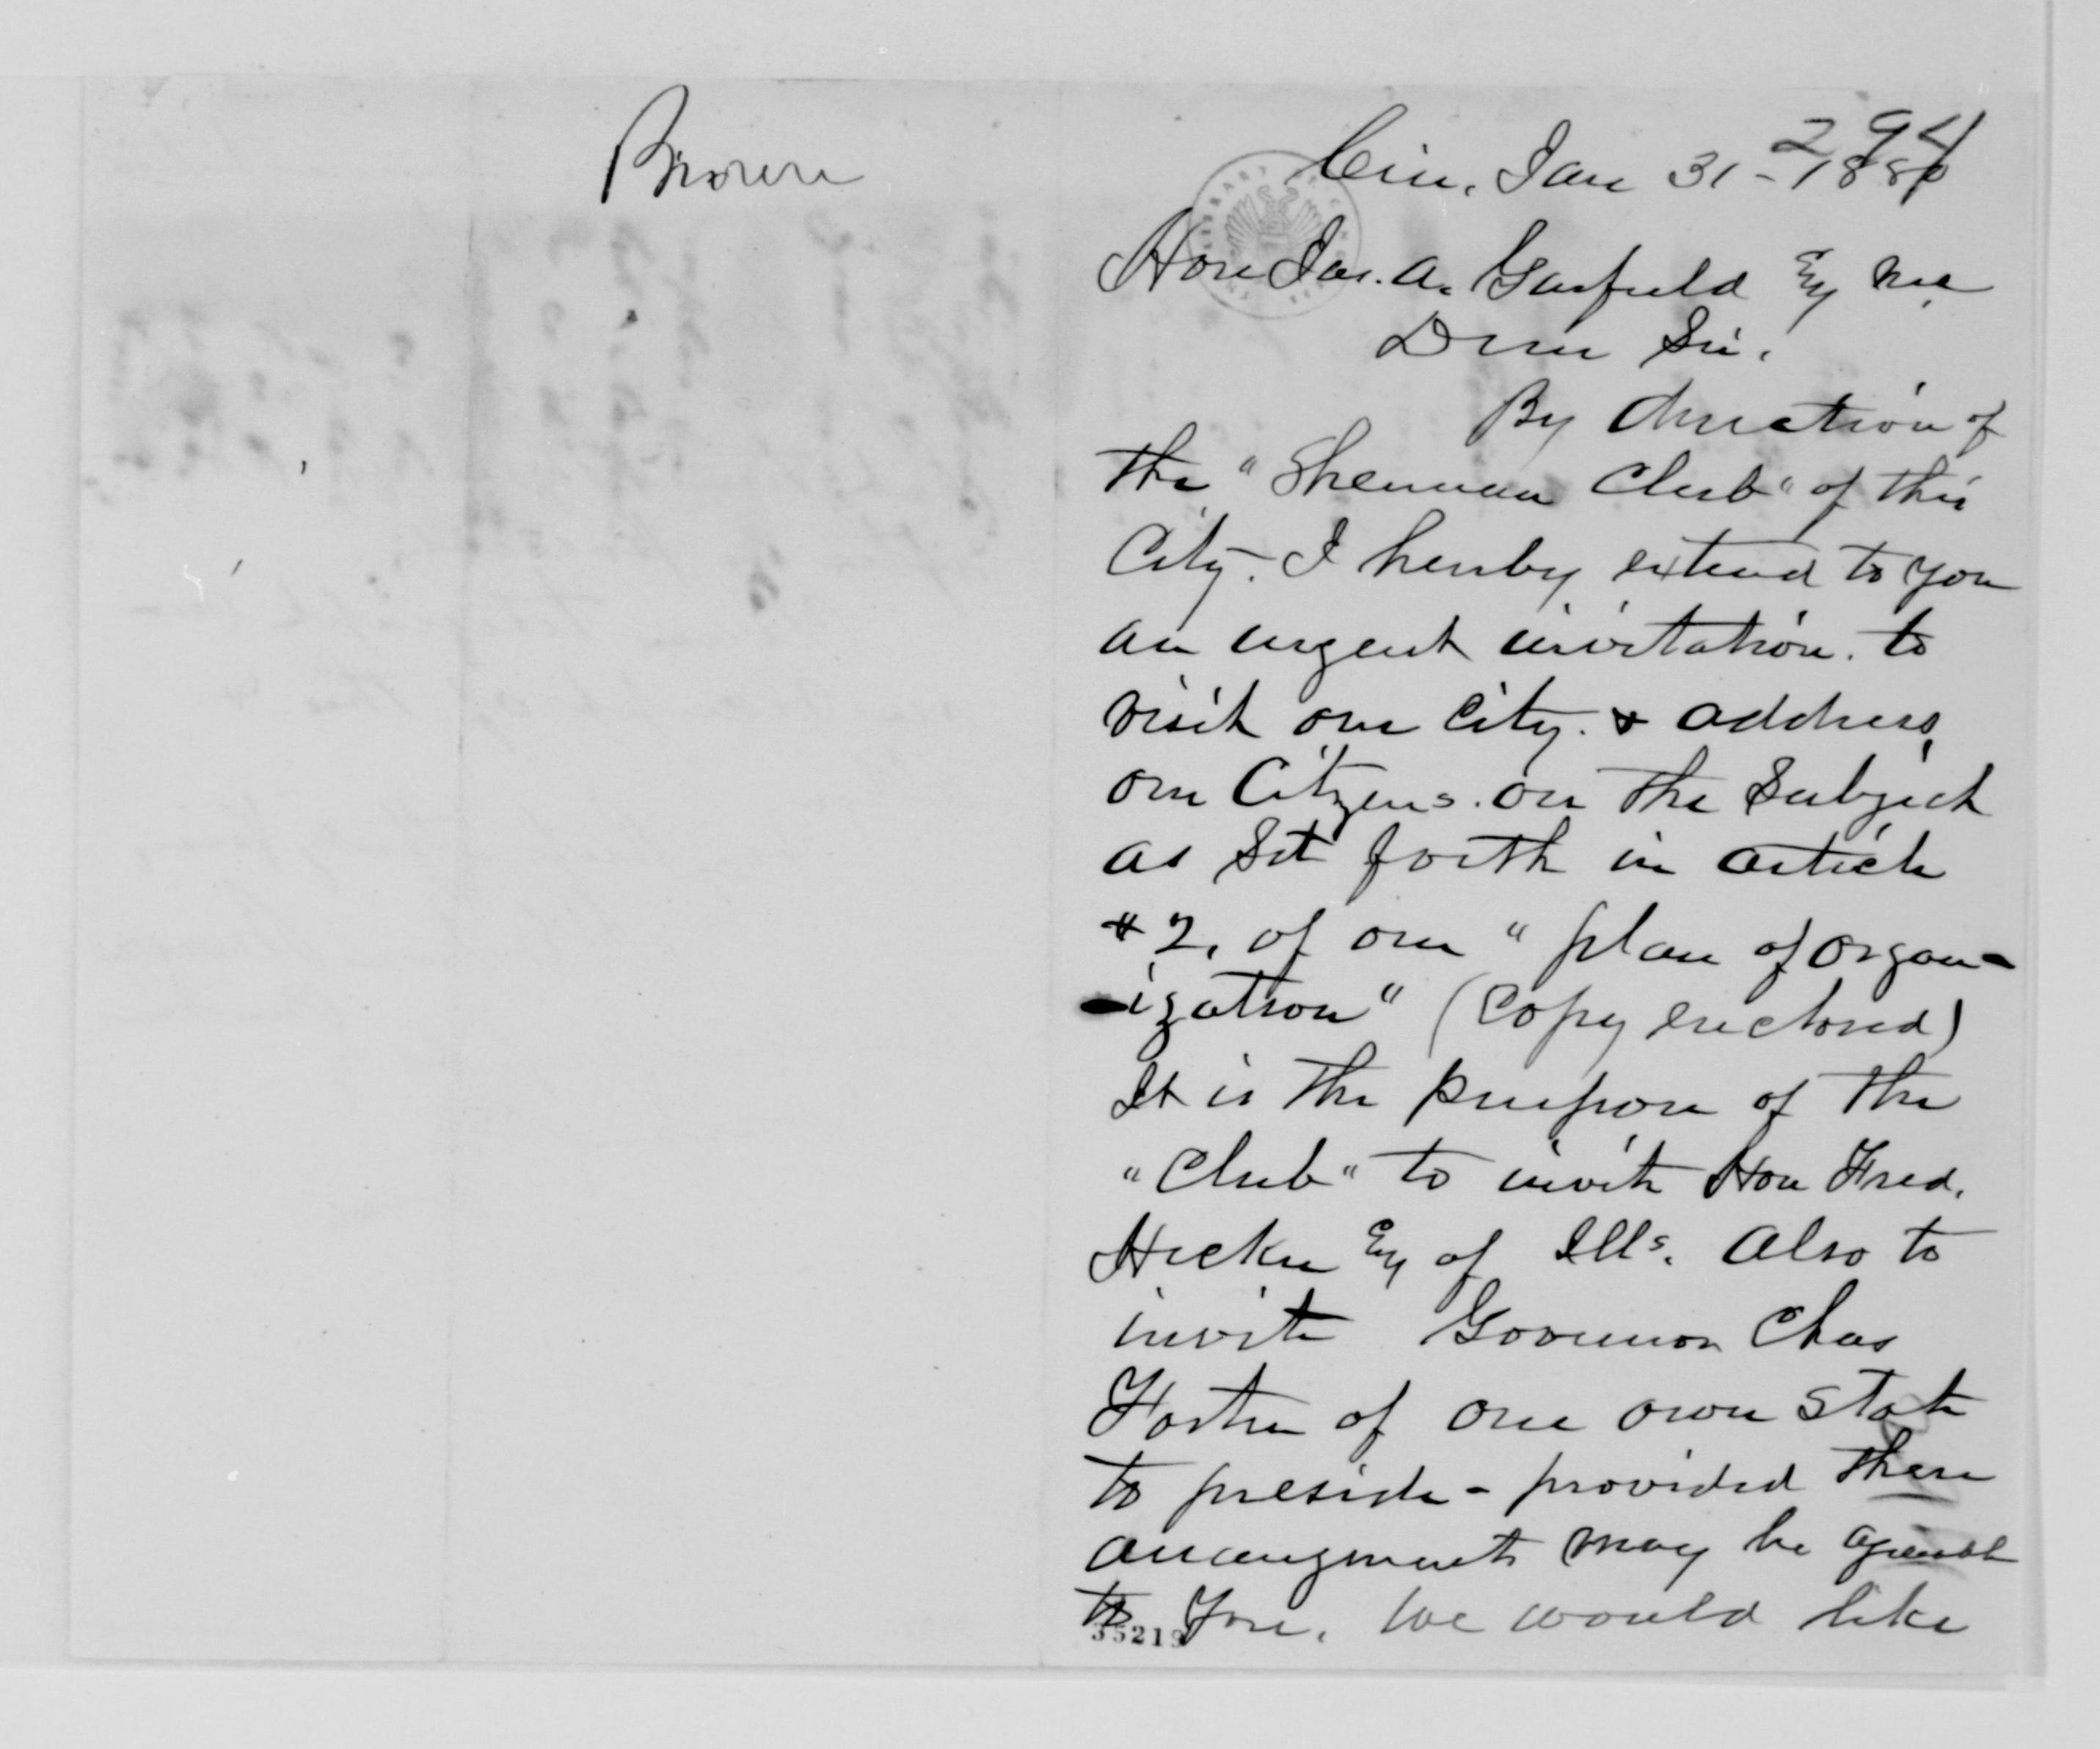 Brown
294
Cin, Jan 31 - 1880
Hon Jas. A. Garfield Esq
Dear Sir.
By direction of
the "Sherman Club" of this
City. I hereby extend to you
an urgent invitation. to
visit our City. & address
our Citizens. on the Subject
as Set forth in article
#2, of our "plan of organ-
-ization" (Copy enclosed)
It is the purpose of the
"Club" to invite Hon Fred.
Hecker Esq of Ills. Also to
invite Governor Chas
Foster of our own State
to preside - provided these
arrangments may be agreeable
to You. We would like
35219